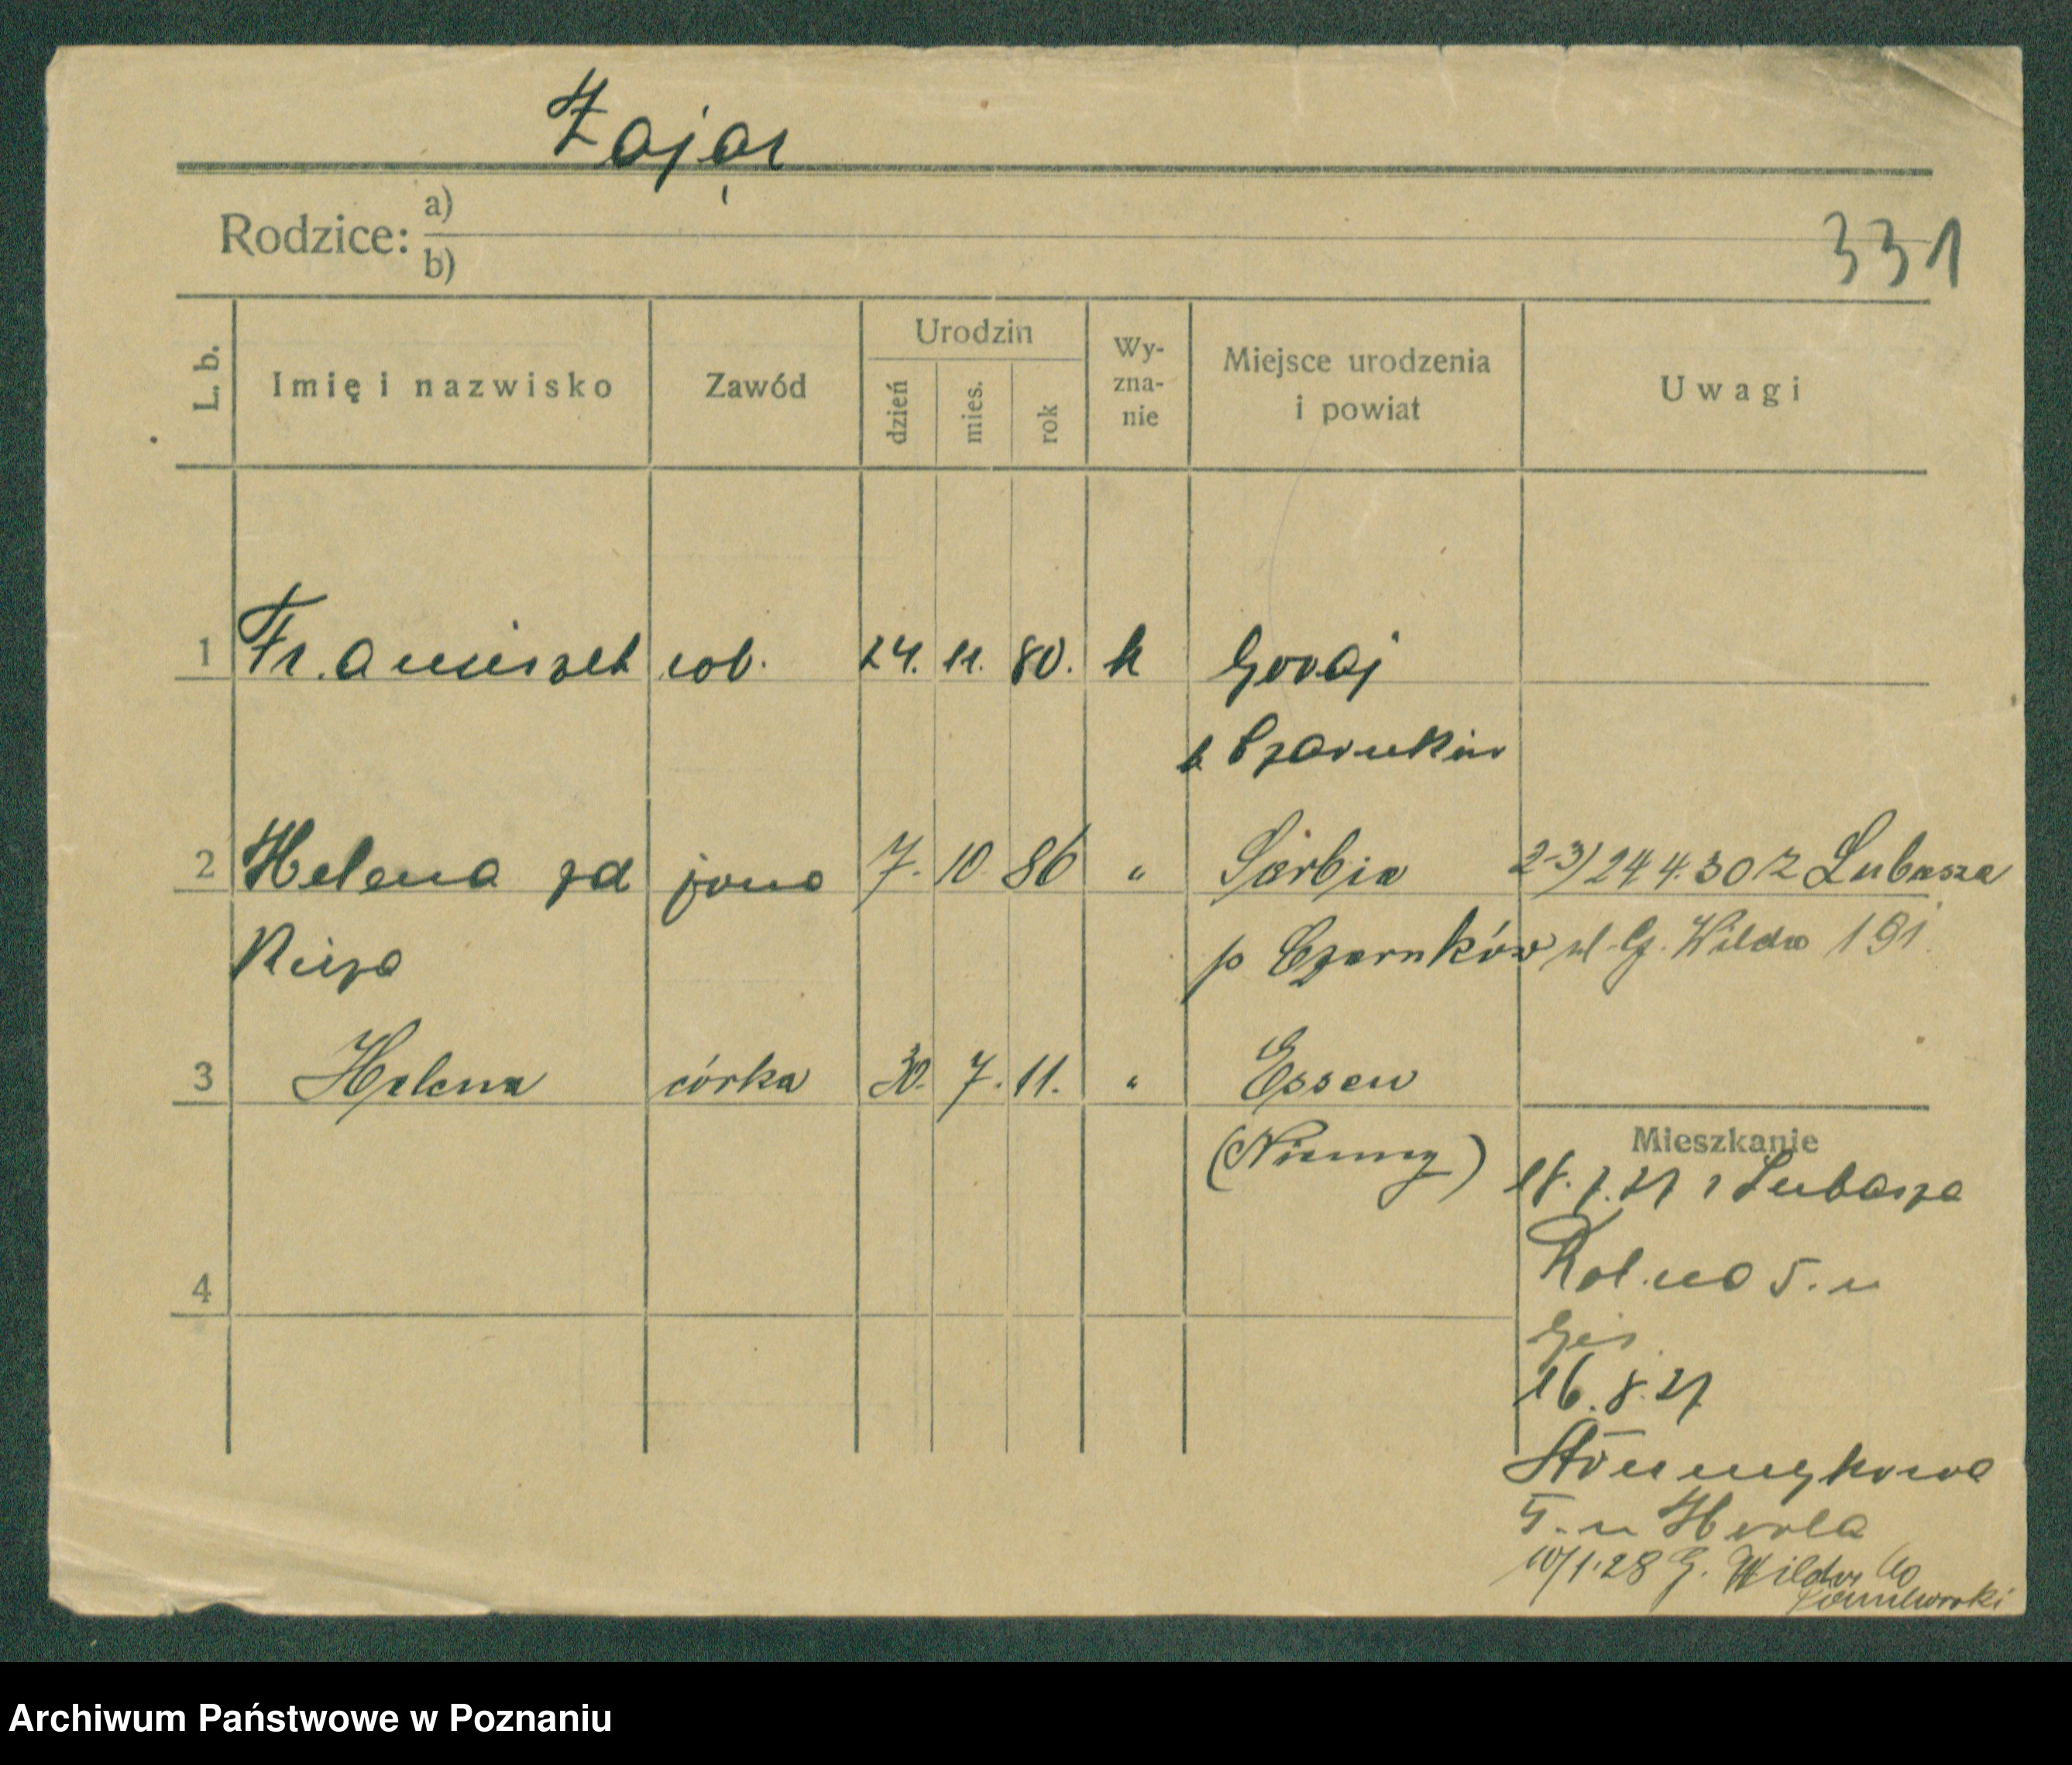 Zając
Rodzice: a)
b)
331
L. b. Imię i nazwisko Zawód Urodzin dzień mies. rok Wy-zna-nie Miejsce urodzenia i powiat Uwagi
1 Franciszek rob. 24. 11. 80. k Goraj
p. Czarnków
2 Helena zd żona 7. 10 86 " Sarbia 2-3) 24 4. 30 z Lubasza
p Czarnków ul. G. Wilda 191
3 Helena córka 30. 7. 11. " Essen
(Niemcy)
Mieszkanie
18. 7. 27 z Lubasza
5. u
4
16. 8. 27
5. u
10/1.28 G. Wilda
Archiwum Państwowe w Poznaniu